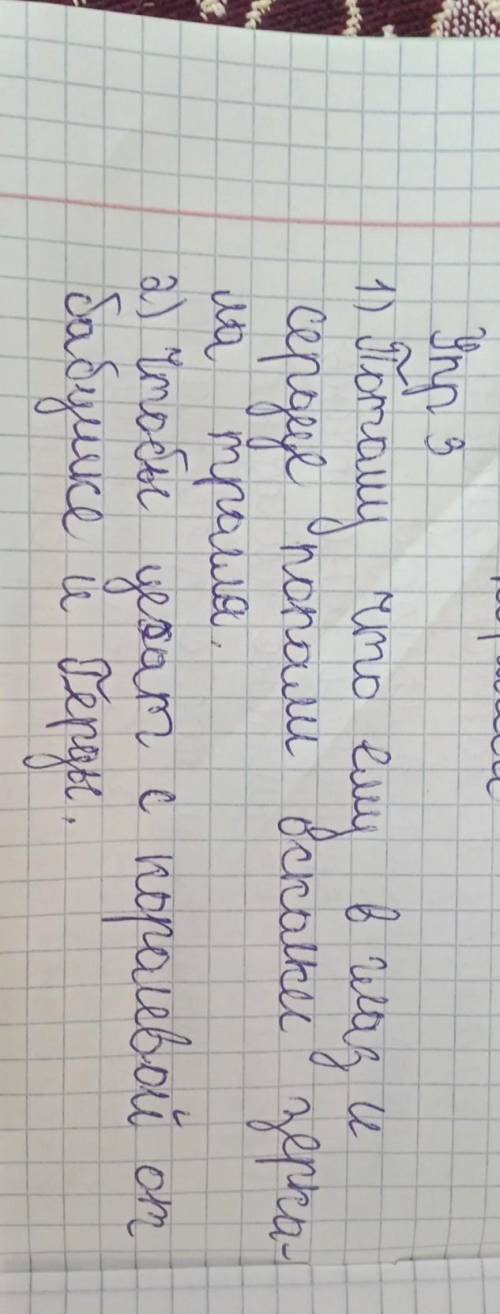 Упр 3
1) Потому что ему в глаз и
сердце попали осколки зерка-
ла тролля.
2) Чтобы уехат с королевой от
бабушке и Герды.